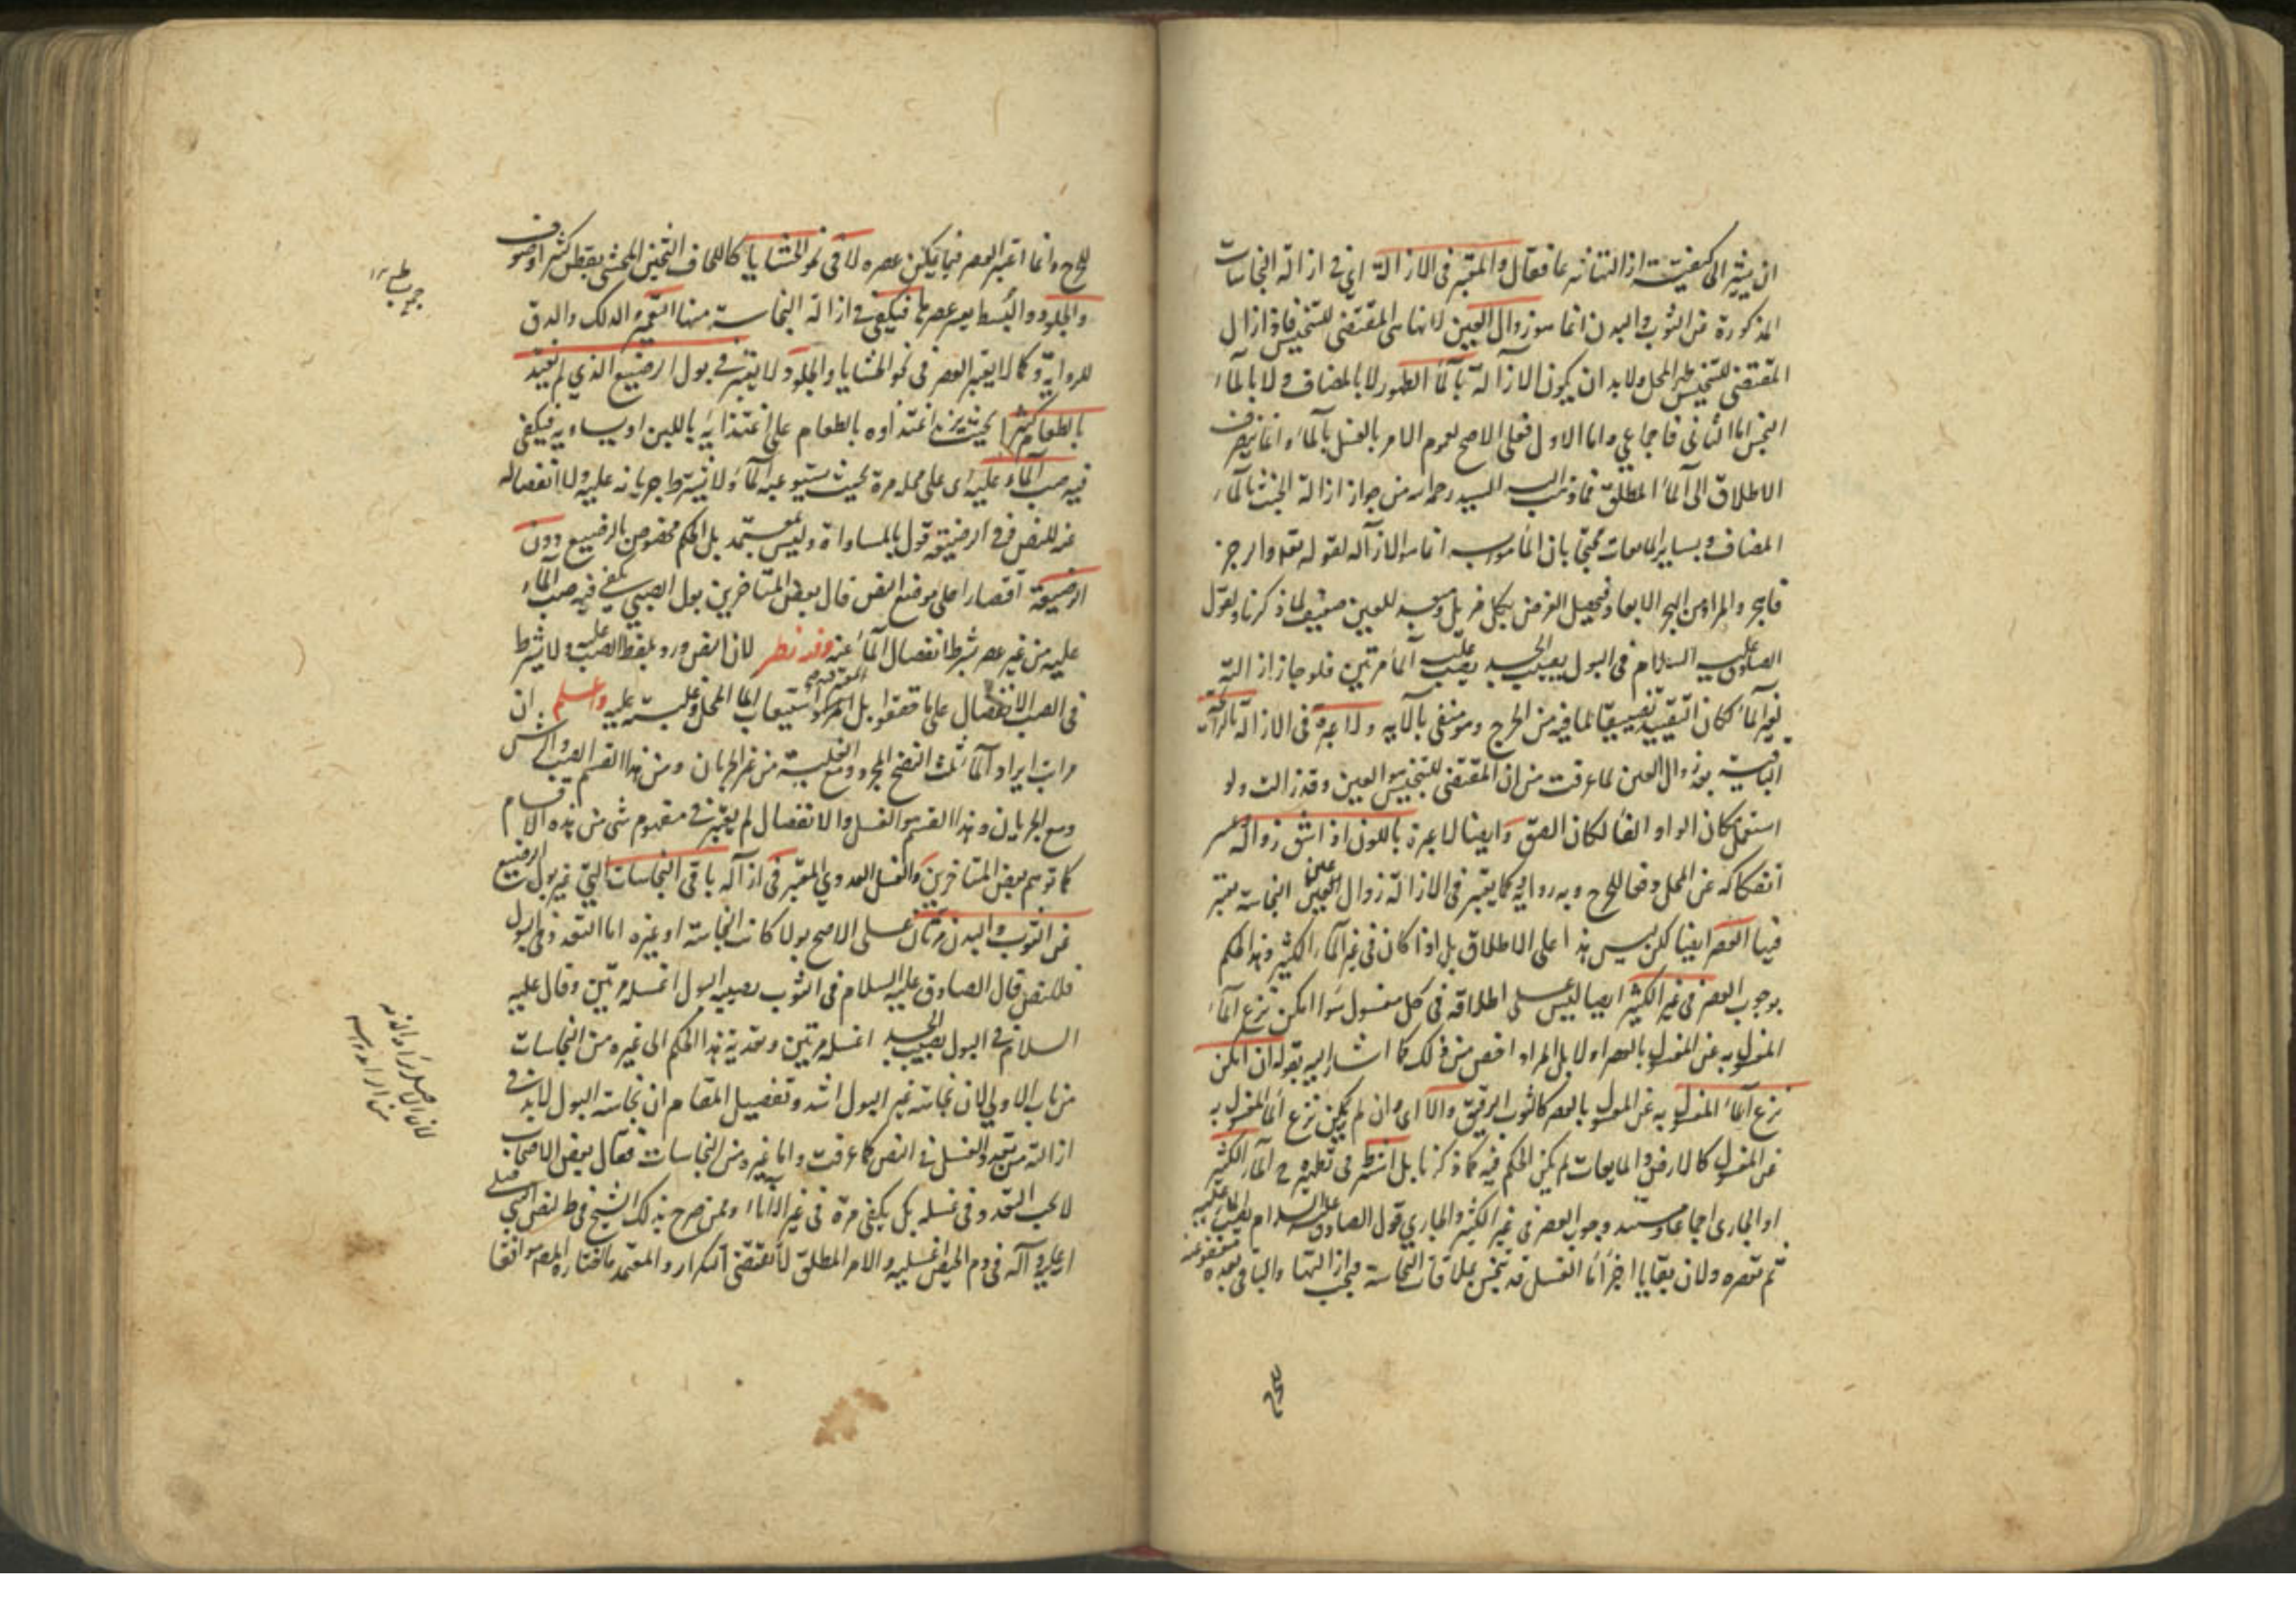 ان يشير الى كيفية ازالتها فقال والمعتبر فى الازالة اى فى ازالة النجاسات
المذكورة عن الثوب والبدن انما هو زوال العين لانها هى المقتضى للتنجيس فاذا زال
المقتضى للتنجيس طهر المحل ولا بد ان يكون الازالة بالماء الطهور لا بالمضاف ولا بالماء
النجس اما الثانى فاجماعى واما الاول فعلى الاصح لعموم الامر بالغسل بالماء وانما ينصرف
الاطلاق الى الماء المطلق فما ذهب اليه السيد رحمه الله من جواز ازالة الخبث بالماء
المضاف وبساير المايعات محتجا بان المأمور به انما هو الازالة لقوله تعالى والرجز
فاهجر والمراد من الهجر الابعاد فيحصل الغرض بكل مزيل للعين ضعيف لما ذكرنا ولقول
الصادق عليه السلام فى البول يصيب الجسد يصب عليه الماء مرتين فلو جاز ازالته
بغير الماء لكان التقييد تضييقا لما فيه من الحرج وهو منفى بالآية ولا عبرة فى الازالة بالرائحة
الباقية بعد زوال العين لما عرفت من ان المقتضى للتنجيس هو العين وقد زالت ولو
استعمل مكان الواو الفا لكان الصق وايضا لا عبرة باللون اذا شق زواله وعسر
انفكاكه عن المحل دفعا للحرج وبه رواية وكما يعتبر فى الازالة زوال عين النجاسة يعتبر
فيها العصر ايضا لكن ليس هذا على الاطلاق بل اذا كان فى غير الماء الكثير وهذا الحكم
بوجوب العصر فى غير الكثير ايضا ليس على اطلاقه فى كل مغسول سوا امكن نزع الماء
المغسول به عن المغسول بالعصر او لا بل المراد اخص من ذلك كما اشار اليه بقوله ان امكن
نزع الماء المغسول به عن المغسول بالعصر كالثوب الرقيق والا اى وان لم يمكن نزع الماء المغسول به
عن المغسول كالارض والمايعات لم يكن الحكم فيه كما ذكرنا بل اشترط فى تطهيره ح الماء الكثير
او الجارى اجماعا ومستند وجوب العصر فى غير الكثير والجارى قول الصادق عليه السلام يصب عليه الماء
ثم تعصره ولان بقايا اجزاء ماء الغسل قد تنجس بملاقات النجاسة فيجب ازالتها والباقى بعده معفو عنه
للحرج
للحرج وانما اعتبر العصر فيما يمكن عصره لا فى نحو الحشايا كاللحاف الثخين المحشى بقطن كثير او صوف
والجلود والبسط يعسر عصرها فيكفى فى ازالة النجاسة منها التغميز والدلك والدق
للرواية وكما لا يعتبر العصر فى نحو الحشايا والجلود لا يعتبر فى بول الرضيع الذى لم يغتذ
بالطعام كثيرا بحيث يزيد اغتذاوه بالطعام على اغتذائه باللبن او يساويه فيكفى
فيه صب الماء عليه اى على محله مرة بحيث يستوعبه الماء ولا يشترط جريانه عليه ولا انفصاله
عنه للنص وفى الرضيعة قول بالمساواة وليس بمعتمد بل الحكم مخصوص بالرضيع دون
الرضيعة اقتصارا على موضع النص قال بعض المتاخرين بول الصبى يكفى فيه صب الماء
عليه من غير عصر بشرط انفصال الماء عنه وفيه نظر لان النص ورد بلفظ الصب عليه ولا يشترط
فى الصب الانفصال على ما حققوا بل المعتبر فيه استيعاب الماء المحل وغلبته عليه واعلم ان
مراتب ايراد الماء ثلث النضح المجرد ومع الغلبة من غير الجريان ومن هذا القسم الصب والرش
ومع الجريان وهذا القسم هو الغسل والانفصال لم يعتبر فى مفهوم شى من هذه الاقسام
كما توهم بعض المتاخرين والغسل العددى المعتبر فى ازالة باقى النجاسات التى غير بول الرضيع
عن الثوب والبدن مرتان على الاصح بولا كانت النجاسة او غيره اما التعدد فى البول
فللنص قال الصادق عليه السلام فى الثوب يصيبه البول اغسله مرتين وقال عليه
السلام فى البول يصيب الجسد اغسله مرتين وتعدية هذا الحكم الى غيره من النجاسات
من باب الاولى لان نجاسة غير البول اشد وتفصيل المقام ان نجاسة البول لابد فى
ازالته من تعدد الغسل فى النص كما عرفت واما غيره من النجاسات فقال بعض الاصحاب
لا يجب التعدد فى غسله بل يكفى مرة فى غير الاناء وممن صرح بذلك الشيخ فى ط لقول النبى صلى
الله عليه وآله فى دم الحيض اغسليه والامر المطلق لا يقتضى التكرار والمعتمد ما اختاره المص موافقا